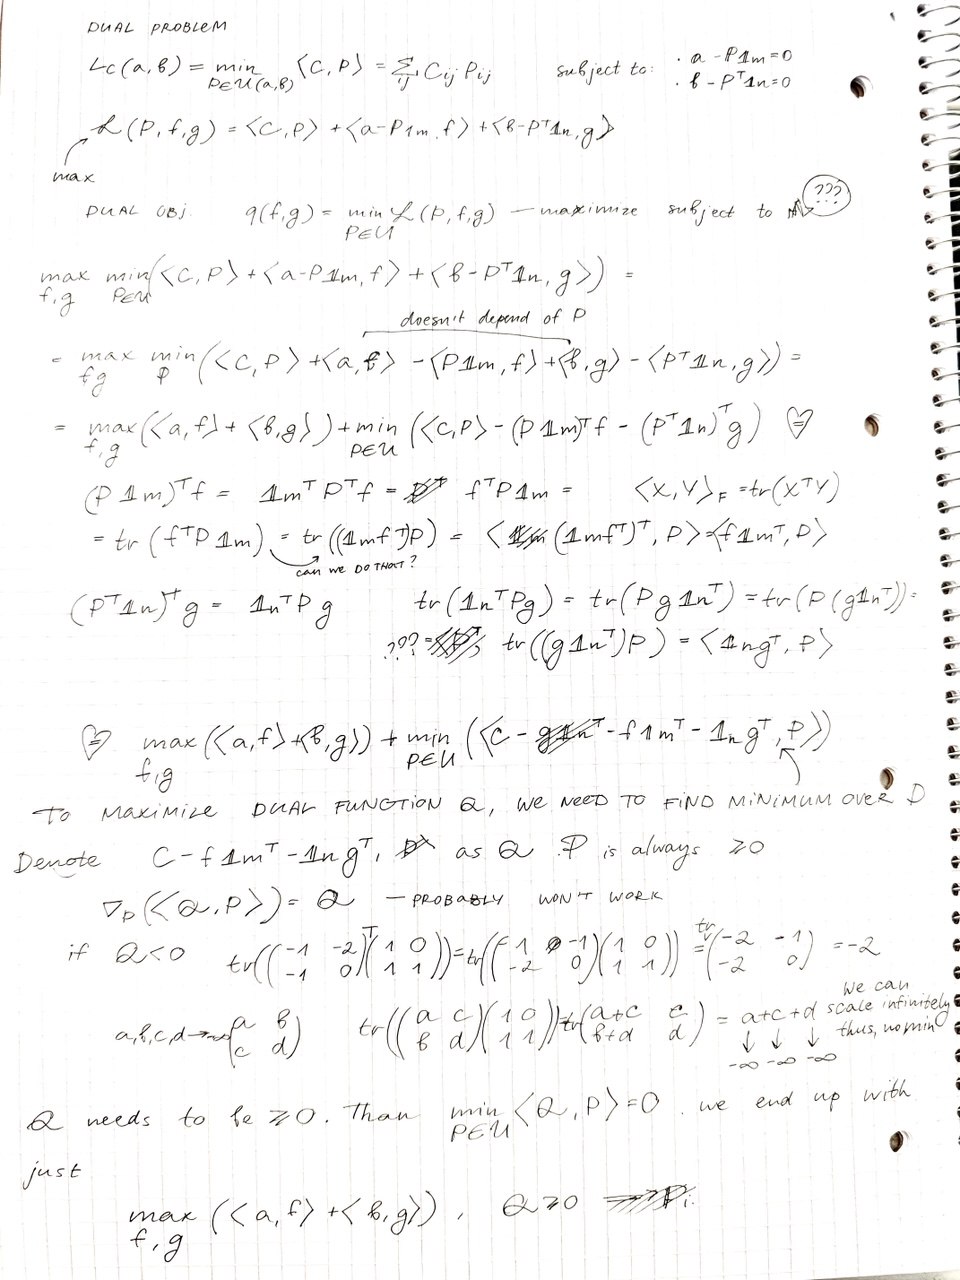 DUAL PROBLEM
Lc(a,b) = min P∈U(a,b) ⟨C,P⟩ = Σij Cij Pij subject to: · a - P𝟙m = 0
· b - Pᵀ𝟙n = 0
ℒ(P,f,g) = ⟨C,P⟩ + ⟨a-P𝟙m, f⟩ + ⟨b-Pᵀ𝟙n, g⟩
max
DUAL OBJ. q(f,g) = min P∈U ℒ(P,f,g) — maximize subject to ???
max f,g min P∈U (⟨C,P⟩ + ⟨a-P𝟙m, f⟩ + ⟨b-Pᵀ𝟙n, g⟩) =
doesn't depend of P
= max fg min P (⟨C,P⟩ + ⟨a,f⟩ - ⟨P𝟙m, f⟩ + ⟨b,g⟩ - ⟨Pᵀ𝟙n, g⟩) =
= max f,g (⟨a,f⟩ + ⟨b,g⟩) + min P∈U (⟨C,P⟩ - (P𝟙m)ᵀf - (Pᵀ𝟙n)ᵀg) ♡
(P𝟙m)ᵀf = 𝟙mᵀPᵀf = fᵀP𝟙m = ⟨X,Y⟩F = tr(XᵀY)
= tr(fᵀP𝟙m) = tr((𝟙mfᵀ)P) = ⟨(𝟙mfᵀ)ᵀ, P⟩ = ⟨f𝟙mᵀ, P⟩
can we DO THAT?
(Pᵀ𝟙n)ᵀg = 𝟙nᵀPg tr(𝟙nᵀPg) = tr(Pg𝟙nᵀ) = tr(P(g𝟙nᵀ)) =
??? = tr((g𝟙nᵀ)P) = ⟨𝟙ngᵀ, P⟩
♡ max f,g (⟨a,f⟩ + ⟨b,g⟩) + min P∈U (⟨C - f𝟙mᵀ - 𝟙ngᵀ, P⟩)
TO MAXIMIZE DUAL FUNCTION Q, WE NEED TO FIND MINIMUM OVER P
Denote C - f𝟙mᵀ - 𝟙ngᵀ, as Q. P is always ≥0
∇P(⟨Q,P⟩) = Q — PROBABLY WON'T WORK
if Q<0 tr((-1 -2; -1 0)ᵀ(1 0; 1 1)) = tr((-1 -1; -2 0)(1 0; 1 1)) = tr(-2 -1; -2 0) = -2
a,b,c,d → -∞ (a b; c d) tr((a c; b d)(1 0; 1 1)) = tr(a+c c; b+d d) = a+c+d
↓ ↓ ↓
-∞ -∞ -∞
we can
scale infinitely
thus, no min
Q needs to be ≥0. Than min P∈U ⟨Q,P⟩ = 0. we end up with
just
max f,g (⟨a,f⟩ + ⟨b,g⟩), Q≥0